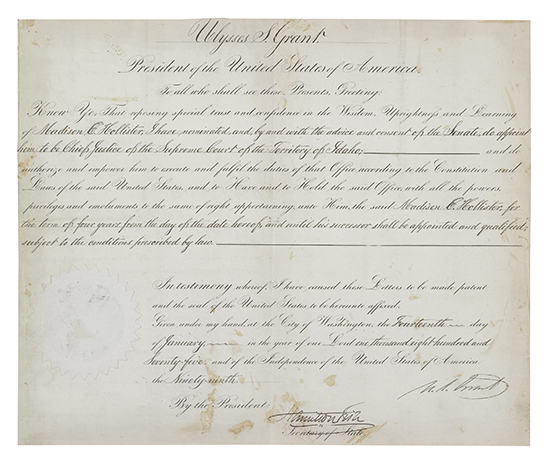 Ulysses S. Grant
President of the United States of America.
To all who shall see these Presents, Greeting:
Know Ye, That reposing special trust and confidence in the Wisdom, Uprightness and Learning
of Madison E. Hollister, I have nominated, and, by and with the advice and consent of the Senate, do appoint
him to be Chief Justice of the Supreme Court of the Territory of Idaho; and do
authorize and empower him to execute and fulfil the duties of that Office according to the Constitution and
Laws of the said United States, and to Have and to Hold the said Office, with all the powers,
privileges and emoluments to the same of right appertaining, unto Him, the said Madison E. Hollister, for
the term of four years from the day of the date hereof, and until his successor shall be appointed and qualified;
subject to the conditions prescribed by law.
In testimony whereof, I have caused these Letters to be made patent
and the seal of the United States to be hereunto affixed.
Given under my hand, at the City of Washington, the Fourteenth day
of January, in the year of our Lord one thousand eight hundred and
Seventy-five, and of the Independence of the United States of America
the Ninety-ninth.
U. S. Grant
By the President:
Hamilton Fish
Secretary of State